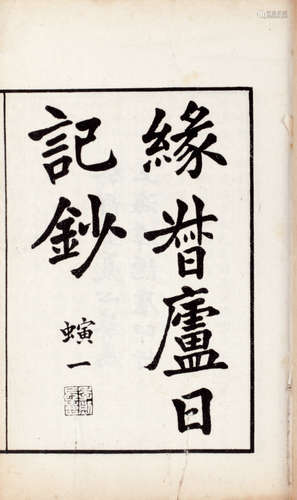 緣督廬日
記鈔
螾一